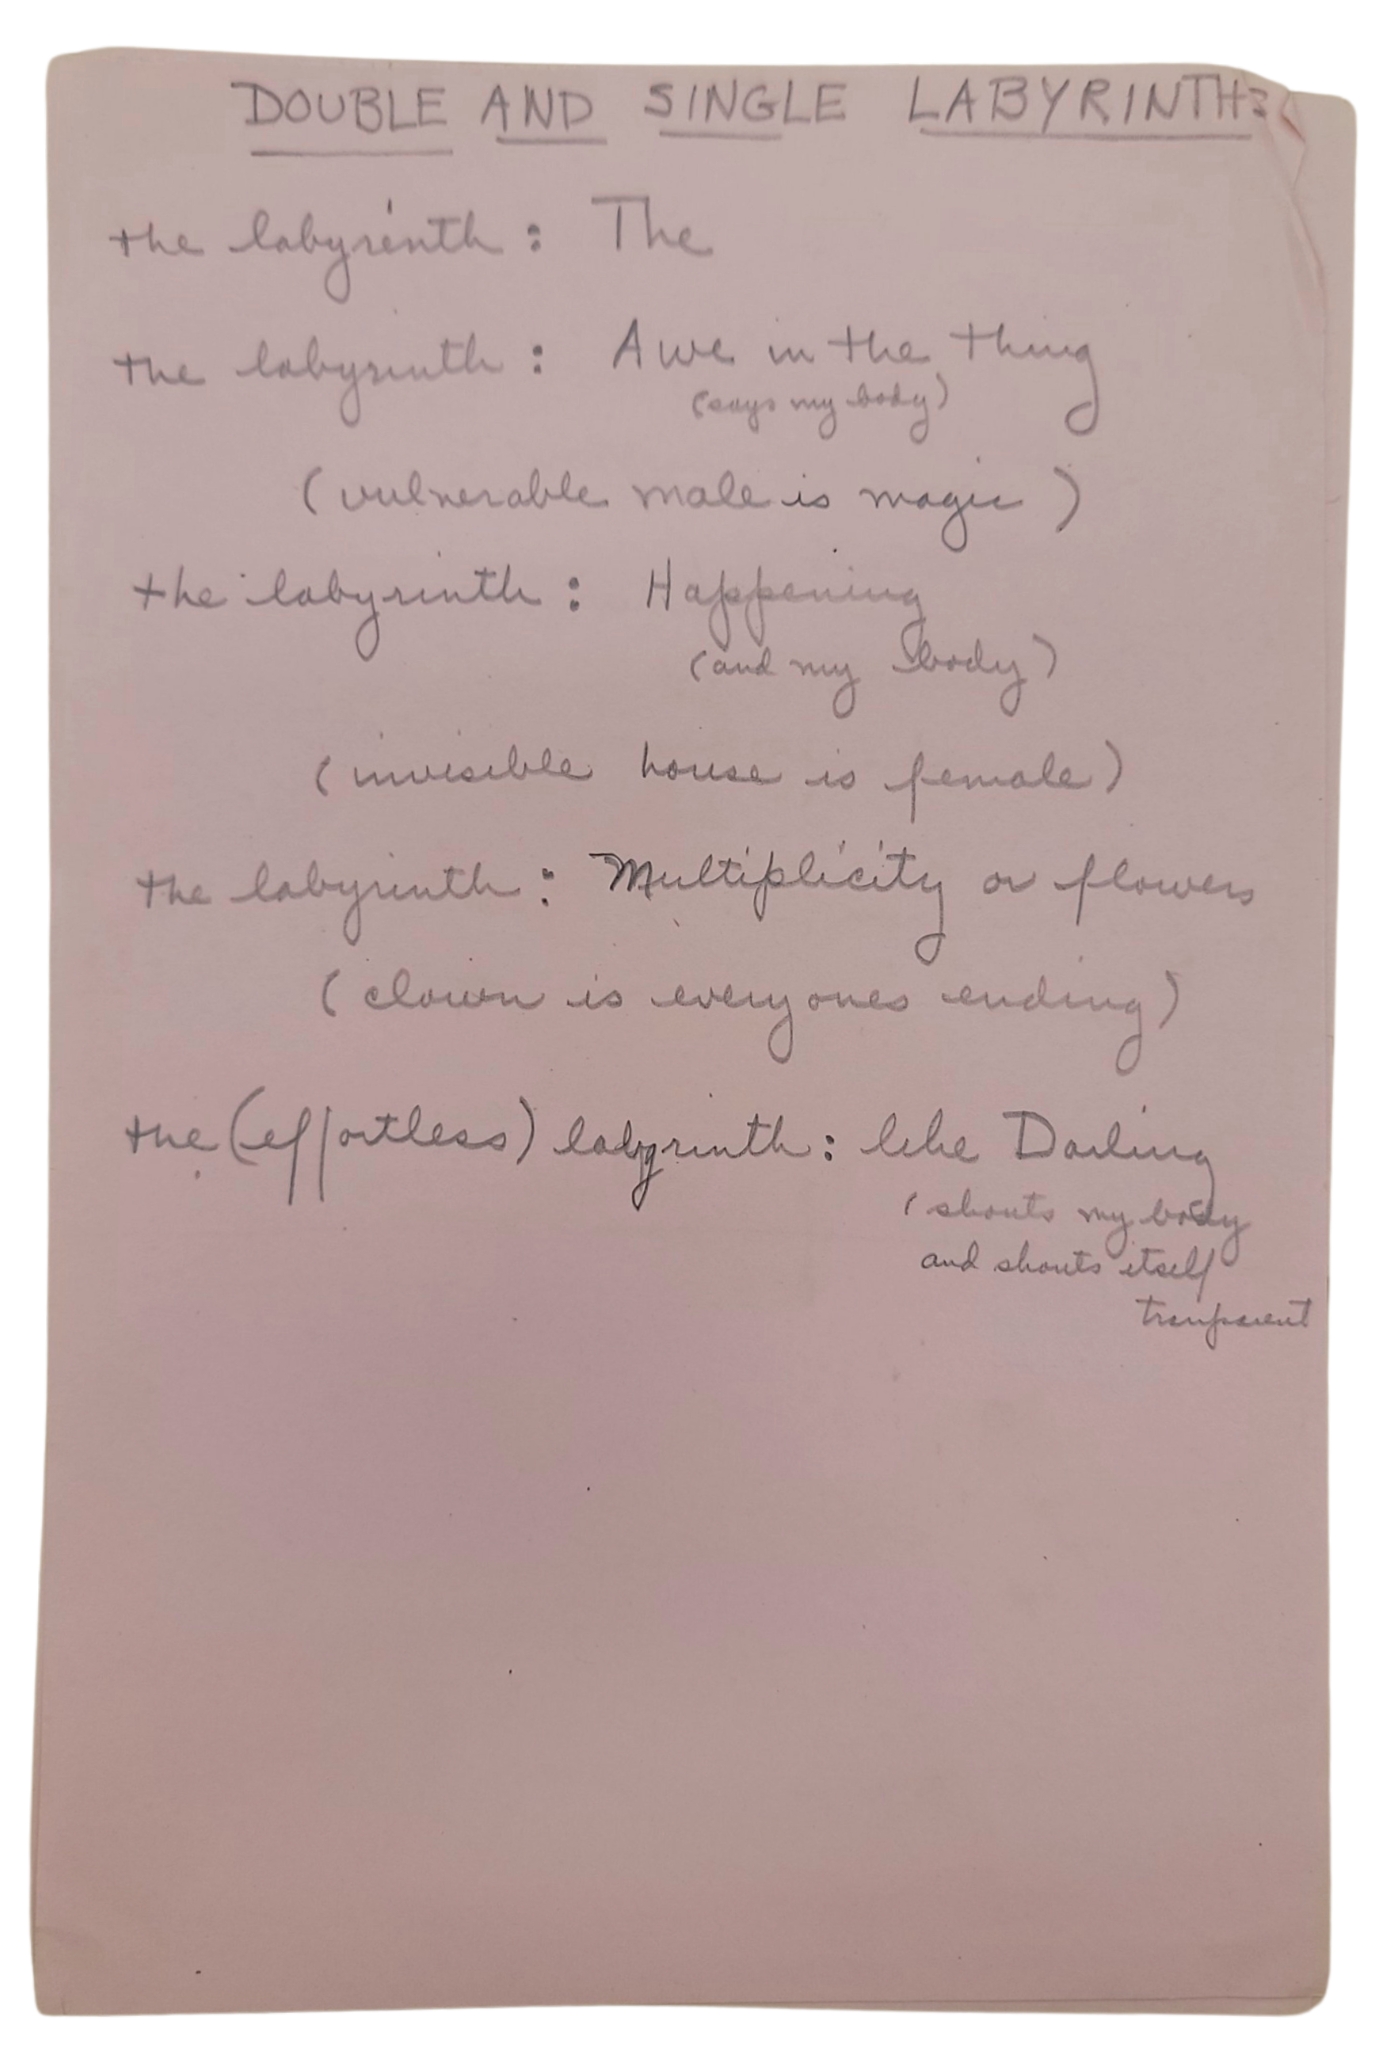 DOUBLE AND SINGLE LABYRINTH:
the labyrinth : The
the labyrinth : Awe in the thing
(says my body)
(vulnerable male is magic)
the labyrinth : Happening
(and my body)
(invisible house is female)
the labyrinth : Multiplicity or flowers
(clown is everyones ending)
the (effortless) labyrinth : like Darling
(shouts my body
and shouts itself
tranparent